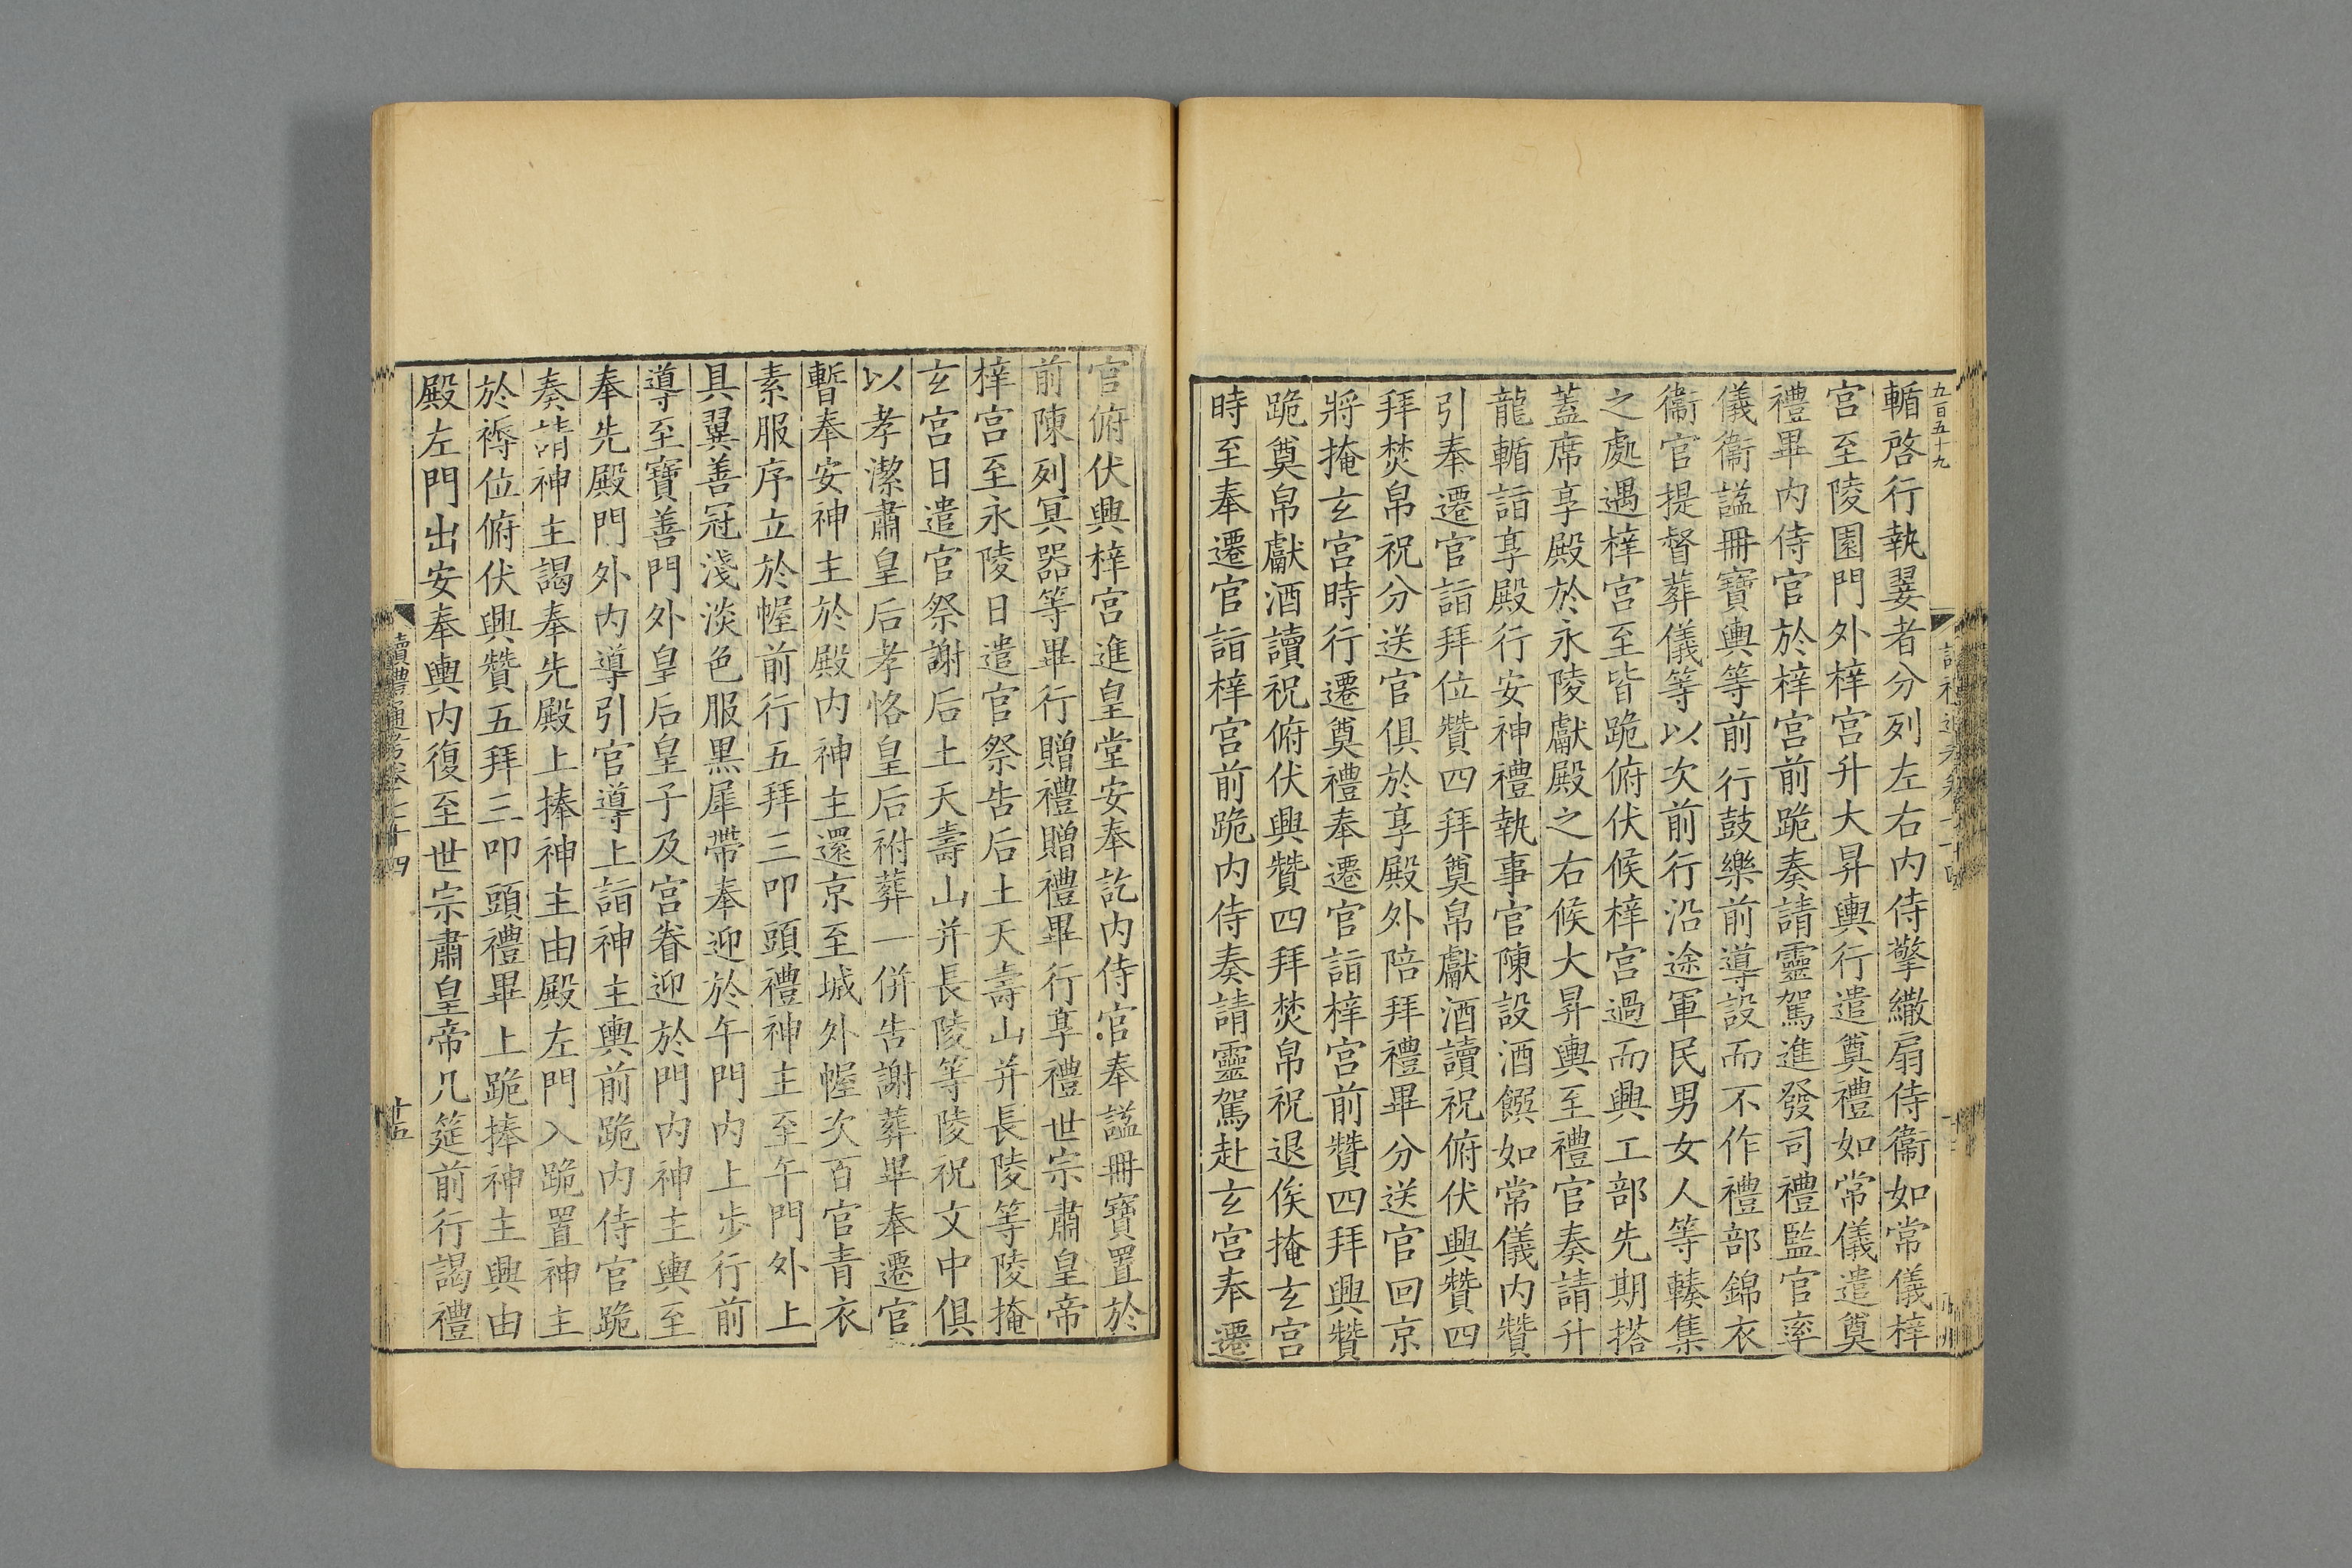 九百五十九
輴啓行執翣者分列左右内侍擎繖扇侍衞如常儀梓
宮至陵園門外梓宮升大昇輿行遣奠禮如常儀遣奠
禮畢内侍官於梓宮前跪奏請靈駕進發司禮監官率
儀衞諡冊寶輿等前行鼓樂前導設而不作禮部錦衣
衞官提督葬儀等以次前行沿途軍民男女人等輳集
之處遇梓宮至皆跪俯伏候梓宮過而興工部先期搭
蓋席享殿於永陵獻殿之右候大昇輿至禮官奏請升
龍輴詣享殿行安神禮執事官陳設酒饌如常儀内贊
引奉遷官詣拜位贊四拜奠帛獻酒讀祝俯伏興贊四
拜焚帛祝分送官俱於享殿外陪拜禮畢分送官回京
將掩玄宮時行遷奠禮奉遷官詣梓宮前贊四拜興贊
跪奠帛獻酒讀祝俯伏興贊四拜焚帛祝退俟掩玄宮
時至奉遷官詣梓宮前跪内侍奏請靈駕赴玄宮奉遷
官俯伏興梓宮進皇堂安奉訖内侍官奉諡冊寶置於
前陳列冥器等畢行贈禮贈禮畢行享禮世宗肅皇帝
梓宮至永陵日遣官祭告后土天壽山并長陵等陵掩
玄宮日遣官祭謝后土天壽山并長陵等陵祝文中俱
以孝潔肅皇后孝恪皇后祔葬一併告謝葬畢奉遷官
暫奉安神主於殿内神主還京至城外幄次百官青衣
素服序立於幄前行五拜三叩頭禮神主至午門外上
具翼善冠淺淡色服黑犀帶奉迎於午門内上步行前
導至寶善門外皇后皇子及宮眷迎於門内神主輿至
奉先殿門外内導引官導上詣神主輿前跪内侍官跪
奏請神主謁奉先殿上捧神主由殿左門入跪置神主
於褥位俯伏興贊五拜三叩頭禮畢上跪捧神主興由
殿左門出安奉輿内復至世宗肅皇帝几筵前行謁禮
讀禮通考卷七十四
十五